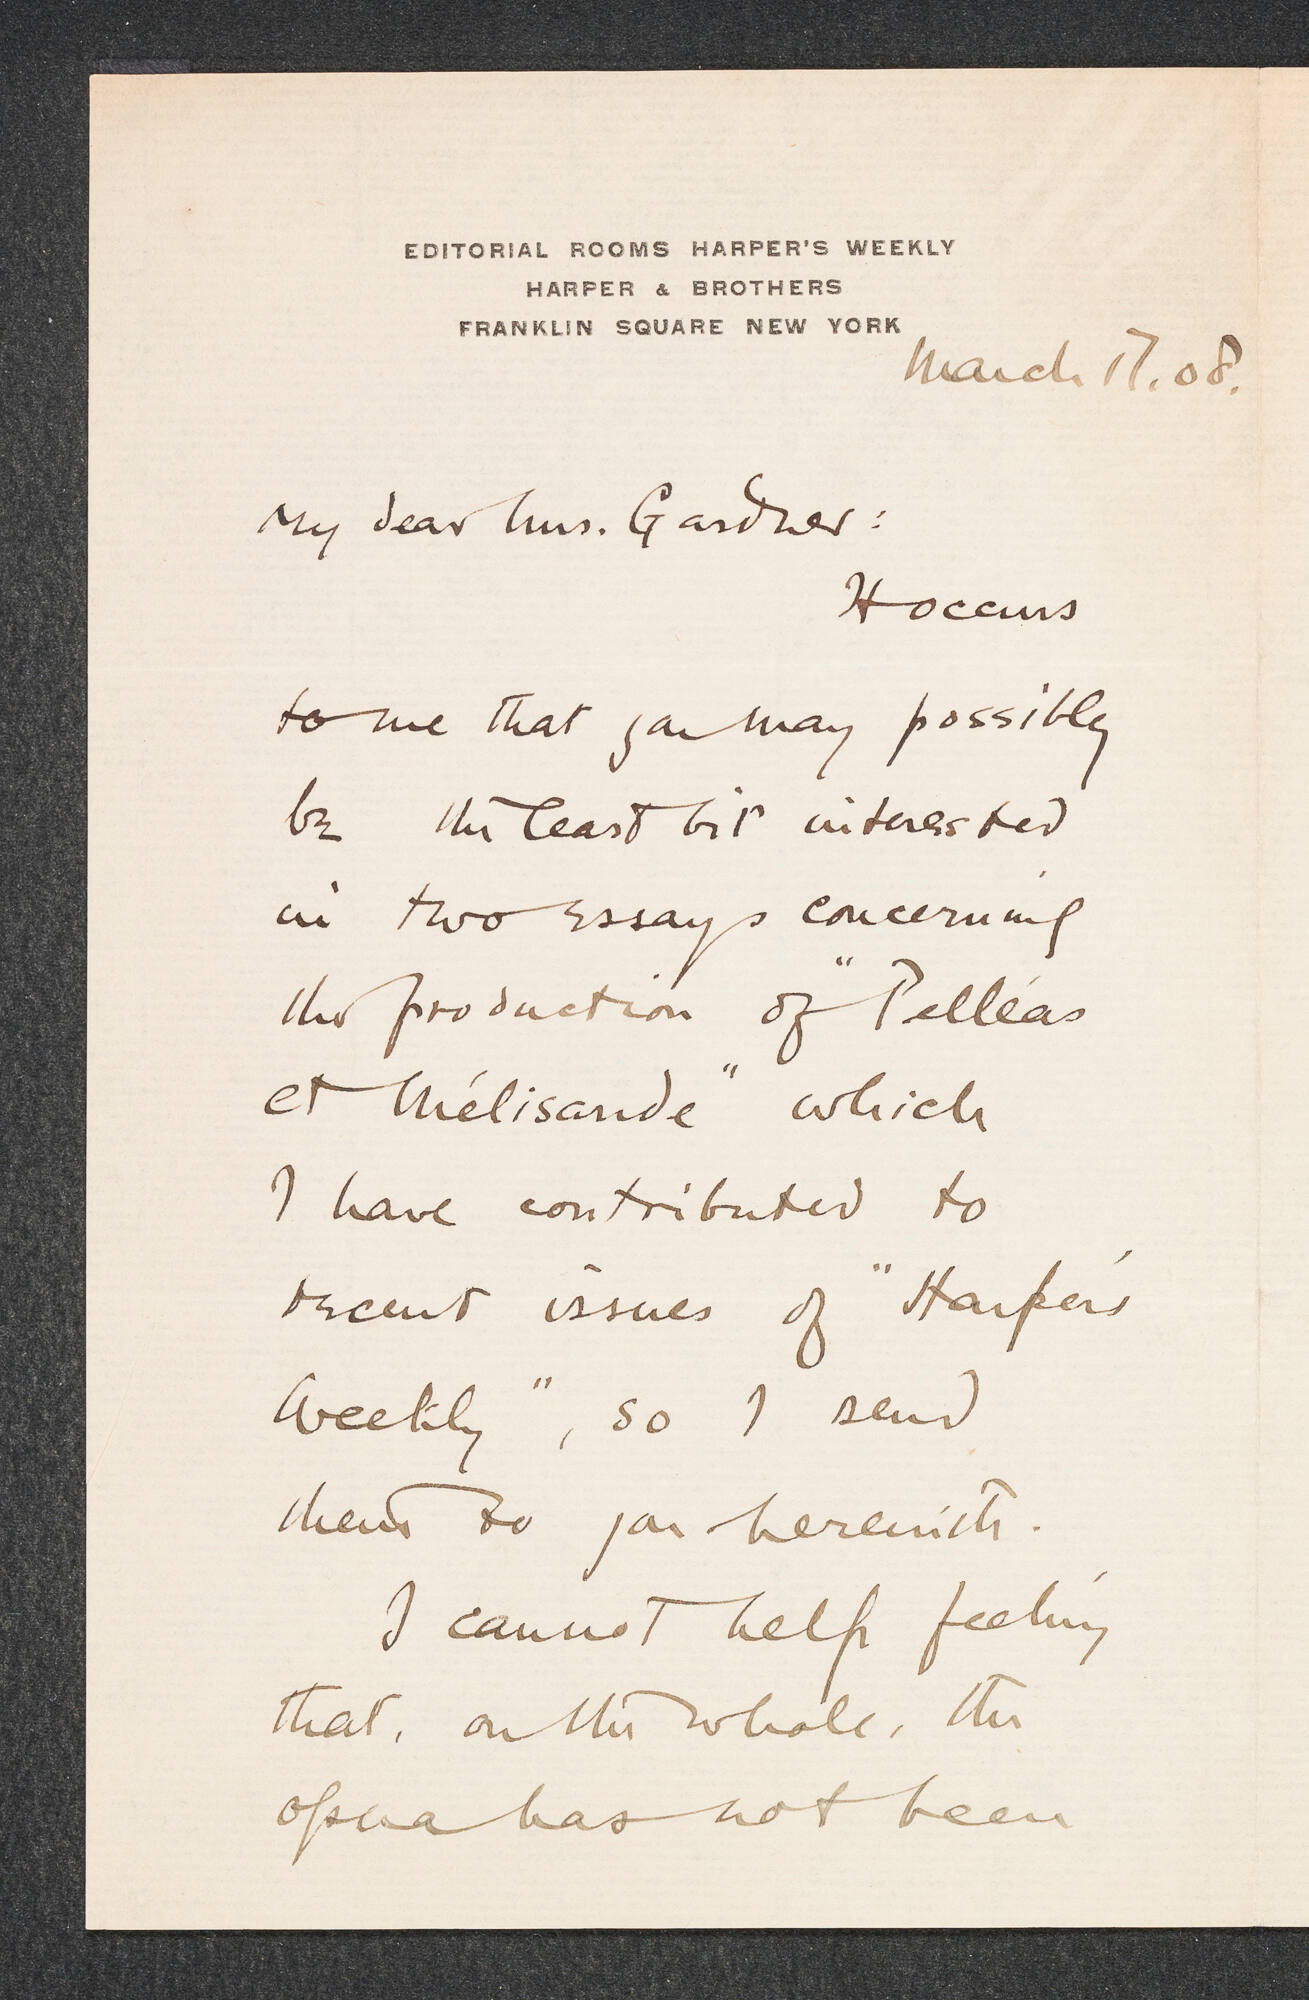 EDITORIAL ROOMS HARPER'S WEEKLY
HARPER & BROTHERS
FRANKLIN SQUARE NEW YORK
March 17. 08.
My dear Mrs. Gardner:
It occurs
to me that you may possibly
be the least bit interested
in two essays concerning
the production of "Pelléas
et Mélisande" which
I have contributed to
recent issues of "Harper's
Weekly", so I send
them to you herewith.
I cannot help feeling
that, on the whole, the
opera has not been